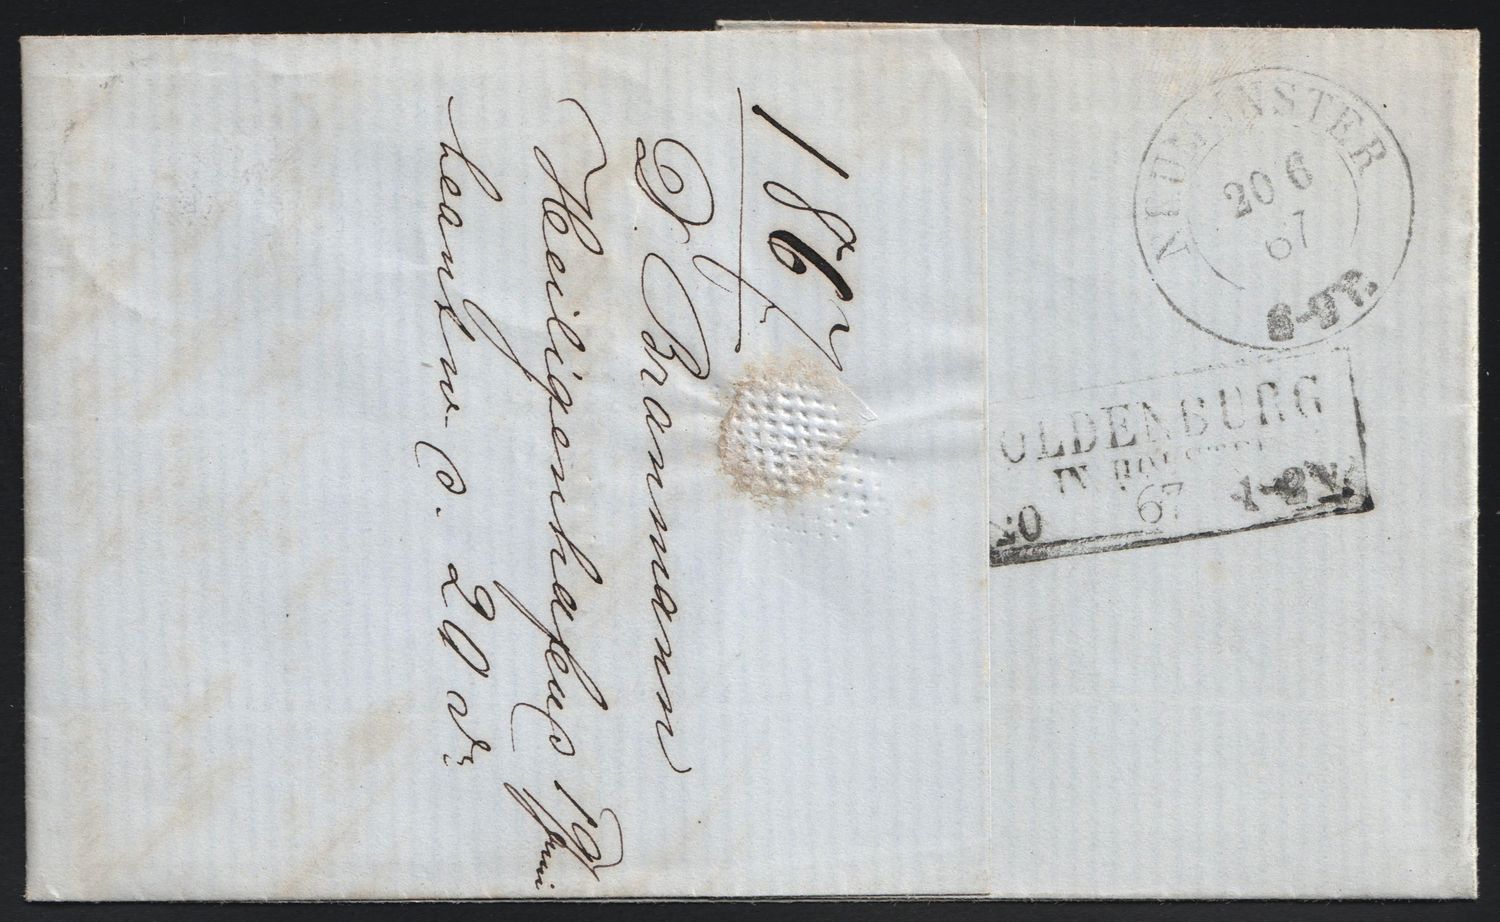 1867
D Brammann
Heiligenhafen 19 Juni
beantw. d. 20 d.
NEUMÜNSTER
20 6
67
OLDENBURG
IN HOLSTEIN
20
67